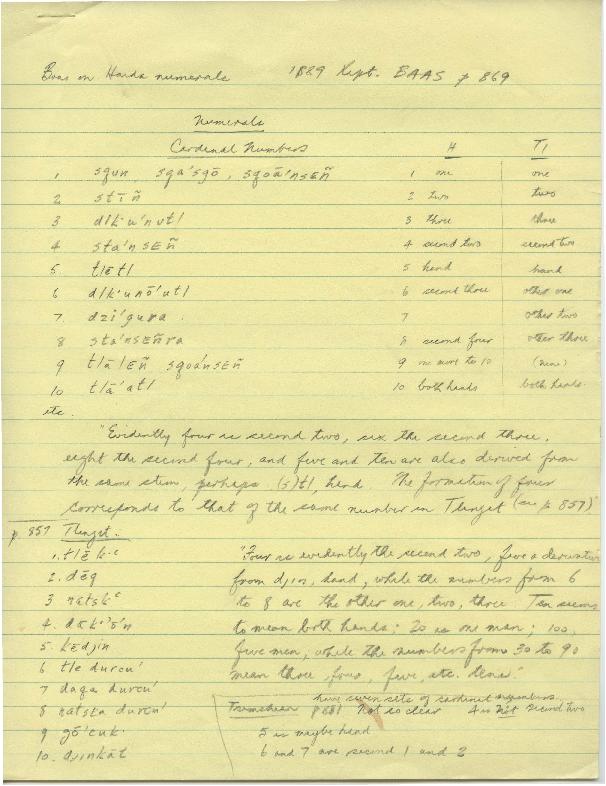 Boas on Haida numerals 1889 Rept. BAAS p 869
Numerals
Cardinal Numbers H Tl
1 sgun, sga'sgō, sgoā'nsEñ 1 one one
2 stīñ 2 two two
3 dlk·u'nutl 3 three three
4 sta'nsEñ 4 second two second two
5. tlētl 5 hand hand
6 dlk·unō'utl 6 second three other one
7. dzī'gura 7 other two
8 sta'nsEñra 8 second four other three
9 tlālEñ sgoánsEñ 9 one more to 10 (nine)
10 tlā'atl 10 both hands both hands
etc.
"Evidently four is second two, six the second three,
eight the second four, and five and ten are also derived from
the same stem, perhaps (s)tl, hand. The formation of four
corresponds to that of the same number in Tlingit (see p 857)"
p 857 Tlingit.
1. tlēk·ᵉ "Four is evidently the second two, five a derivative
2. dēq from djin, hand, while the numbers from 6
3 natskᵉ to 8 are the other one, two, three. Ten seems
4. dak·'ō'n to mean both hands; 20 is one man; 100,
5. kēdjin five men; while the numbers from 30 to 90
6 tle durcu' mean three, four, five, etc. tens."
7 daga durcu' have seven sets of cardinal numbers.
8 natska durcu' Tsimshian p 881 Not so clear 4 is not second two
9 gō'cuk· 5 is maybe hand
10. djinkāt 6 and 7 are second 1 and 2